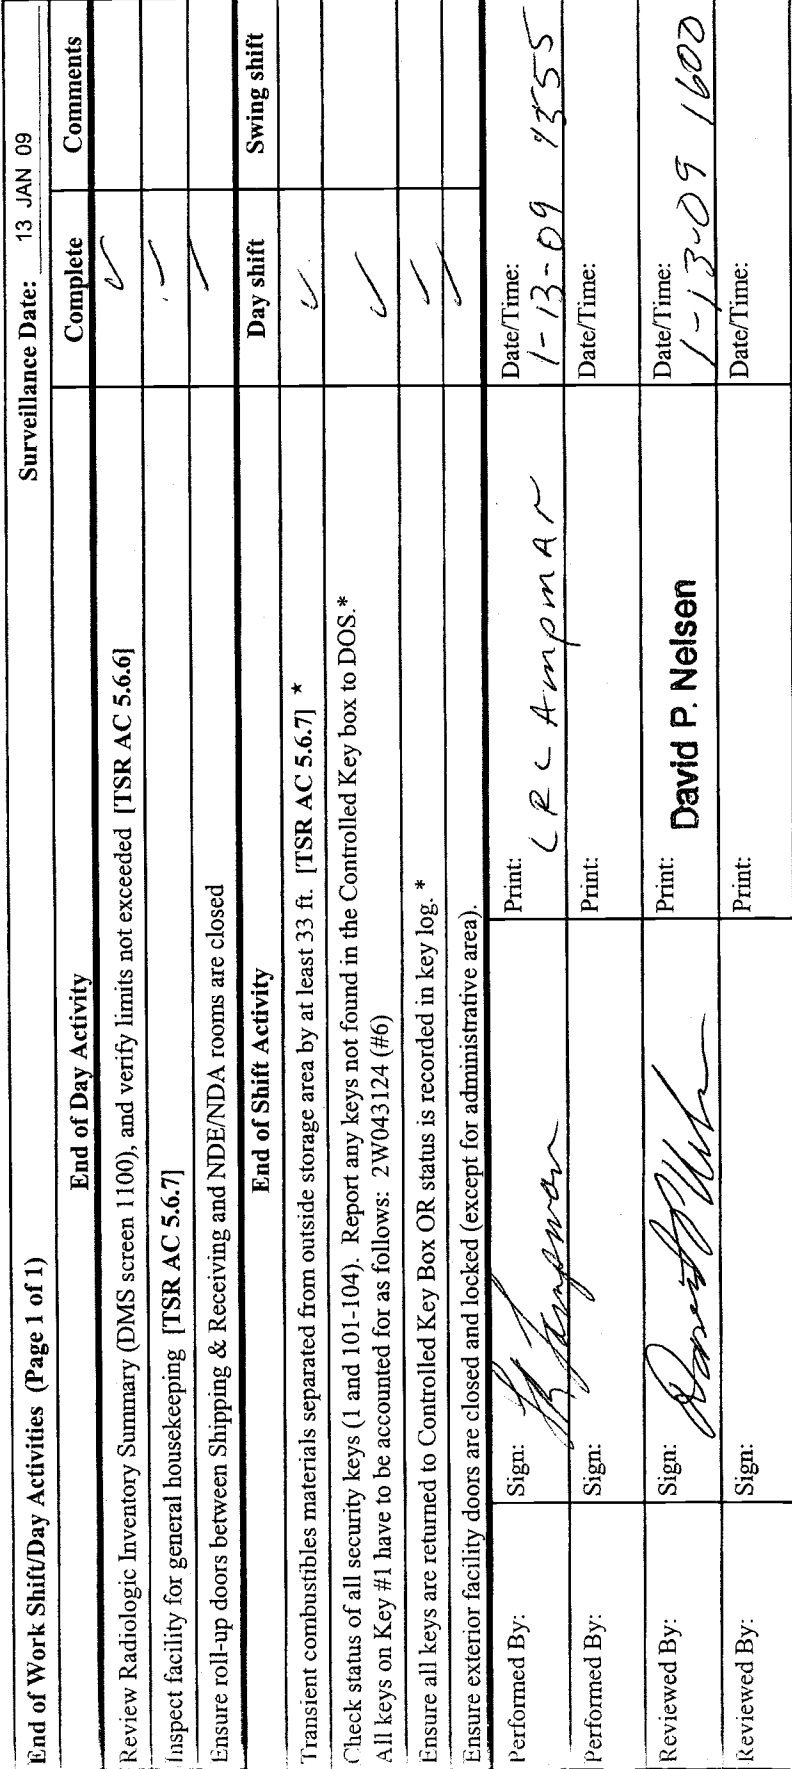 End of Work Shift/Day Activities (Page 1 of 1) Surveillance Date: 13 JAN 09
End of Day Activity Complete Comments
Review Radiologic Inventory Summary (DMS screen 1100), and verify limits not exceeded [TSR AC 5.6.6] ✓
Inspect facility for general housekeeping [TSR AC 5.6.7] ✓
Ensure roll-up doors between Shipping & Receiving and NDE/NDA rooms are closed ✓
End of Shift Activity Day shift Swing shift
Transient combustibles materials separated from outside storage area by at least 33 ft. [TSR AC 5.6.7] * ✓
Check status of all security keys (1 and 101-104). Report any keys not found in the Controlled Key box to DOS.* ✓
All keys on Key #1 have to be accounted for as follows: 2W043124 (#6)
Ensure all keys are returned to Controlled Key Box OR status is recorded in key log. * ✓
Ensure exterior facility doors are closed and locked (except for administrative area). ✓
Performed By: Sign: Print: LR LAmpmAn Date/Time: 1-13-09
Performed By: Sign: Print: Date/Time:
Reviewed By: Sign: Print: David P. Nelsen Date/Time: 1-13-09 1600
Reviewed By: Sign: Print: Date/Time: